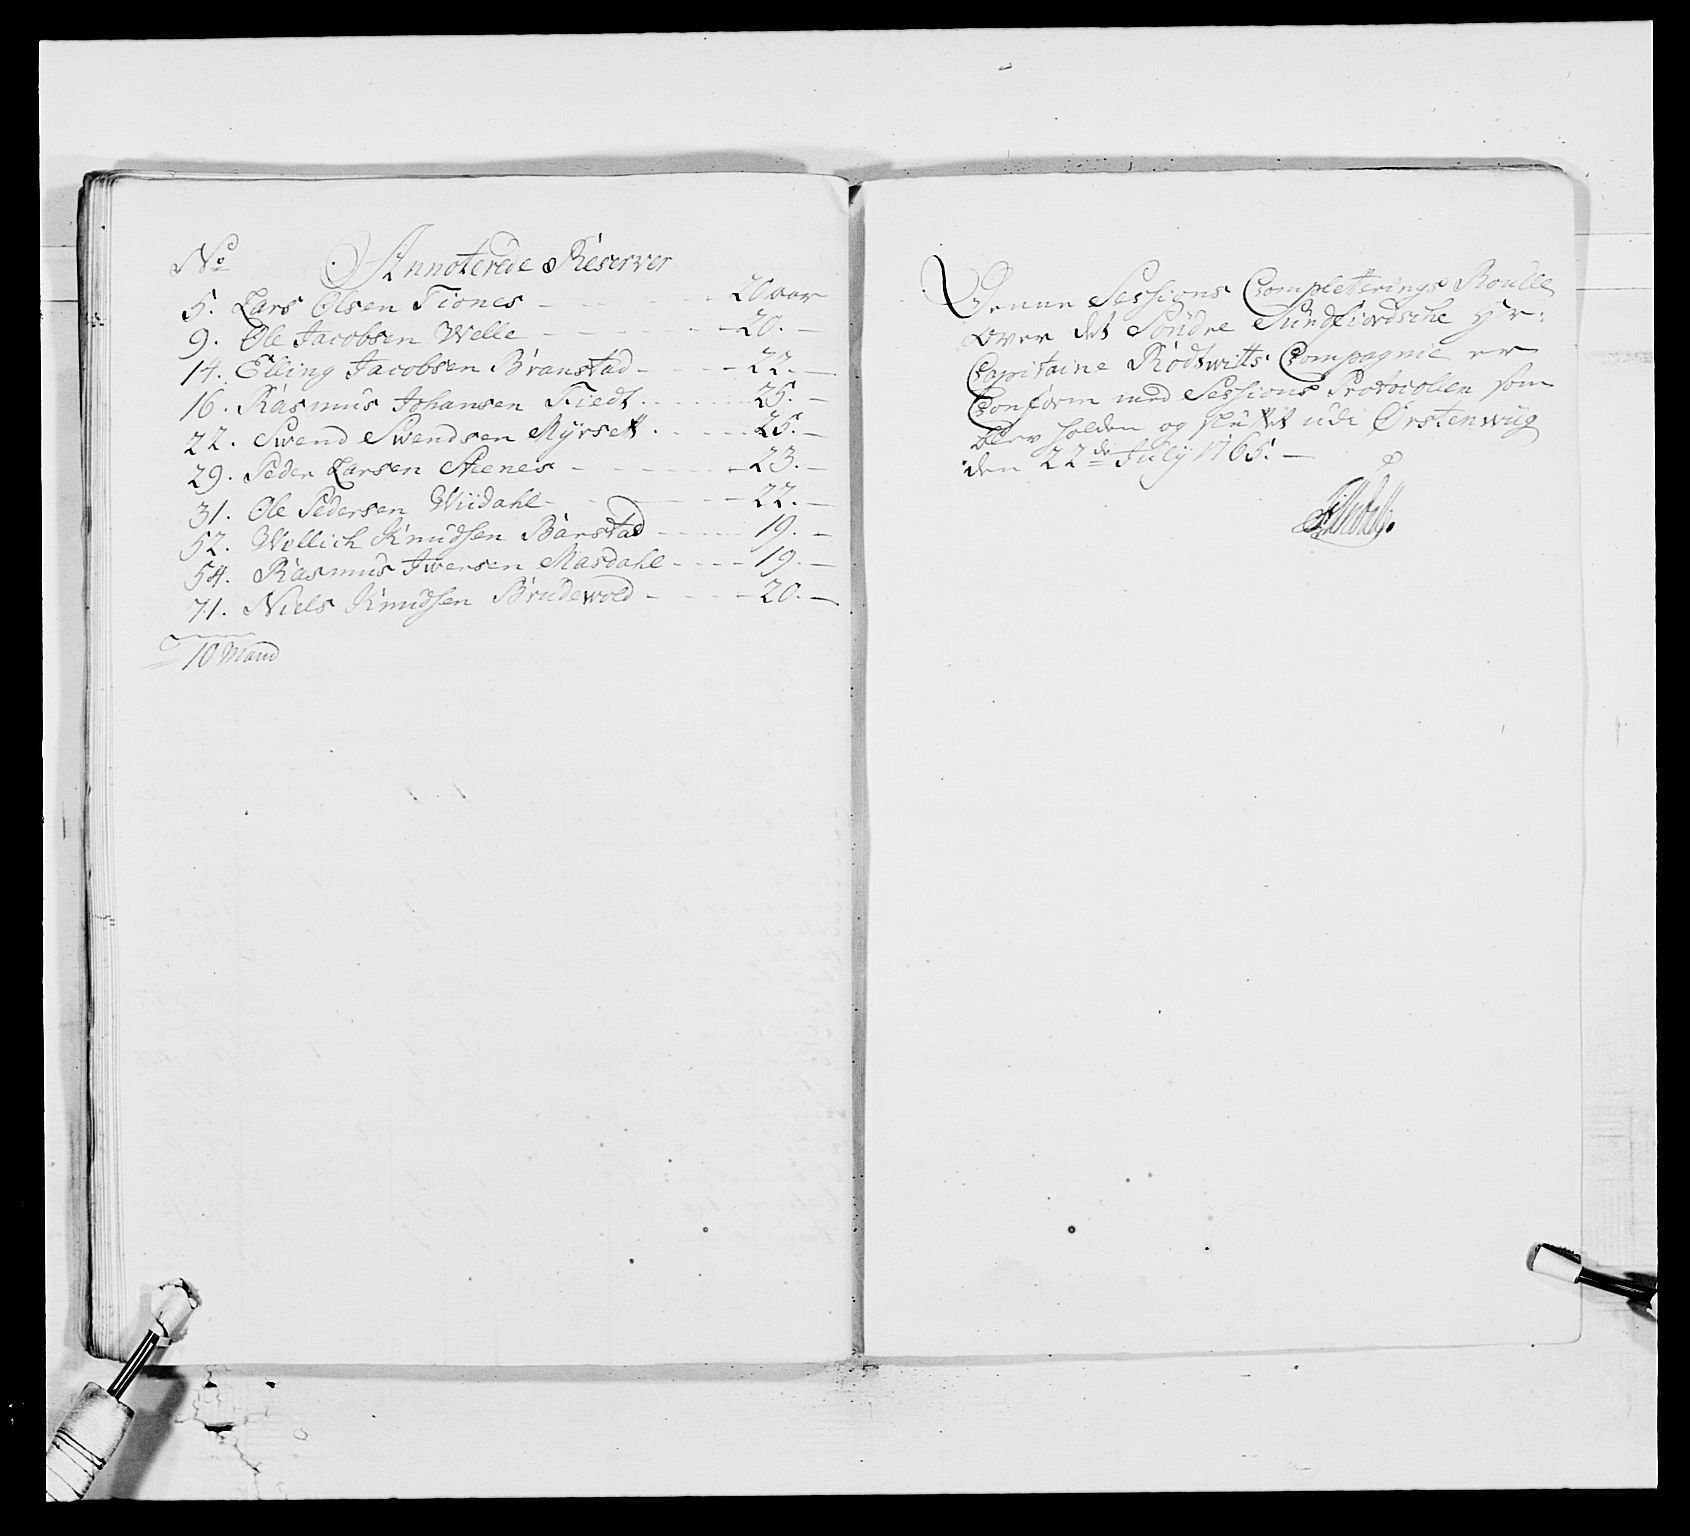 No Annoterede Reserver
5. Lars Olsen Fiones - - - - - 20 aar
9. Ole Jacobsen Welle - - - - - 20. -
14. Elling Jacobsen Branstad - - - - 22. -
16. Rasmus Johansen Tiedt - - - - 25. -
22. Swend Swendsen Myrsett - - - - 25. -
29. Peder Larsen Steenes - - - - - 23. -
31. Ole Pedersen Wiidahl - - - - - 22. -
52. Wellich Knudsen Barstad - - - - 19. -
54. Rasmus Iwersen Masdahl - - - - 19. -
71. Niels Knudsen Brudewold - - - - 20. -
10 Mand
Denne Sessions Completterings Roulle
over det Söndre Sundfiordsche Hr:
Capitaine Rödtwitts Compagnie er
Conform med Sessions Protocollen som
blev holden og sluttet udi Ørstenwiig
den 22de July 1765. -